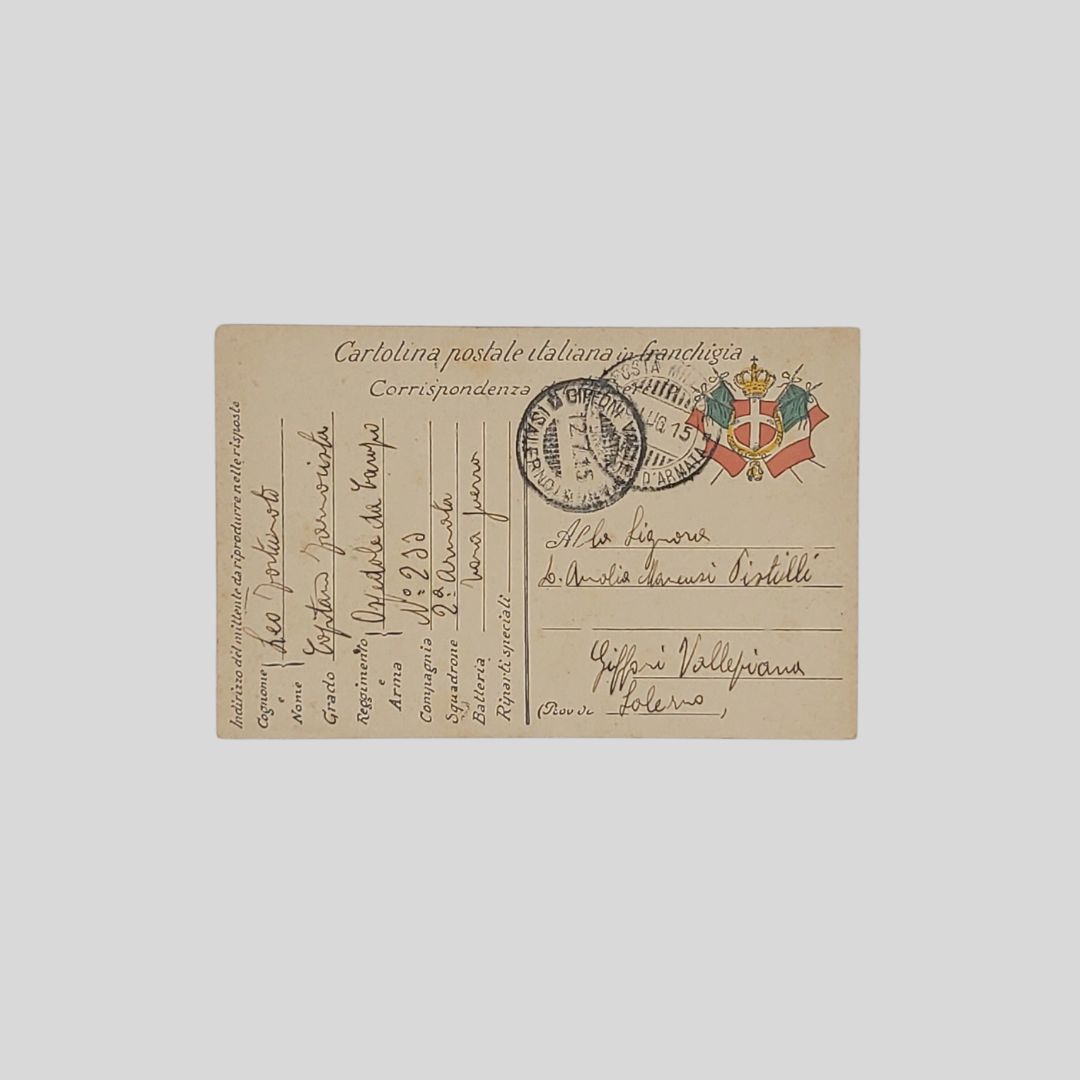 Cartolina postale italiana in franchigia
Corrispondenza
POSTA
LUG 15
D'ARMATA
GIFFONI
12.7.15
(SALERNO)
Indirizzo del mittente da riprodurre nelle risposte
Cognome e Nome { Leo Fortunato
Grado Capitano
Reggimento e Arma { Ospedale da Campo
Compagnia No. 233
Squadrone 2a Armata
Batteria Zona guerra
Riparti speciali
Alla Signora
D. Amalia Pistilli
Giffoni Vallepiana
(Prov di Salerno,